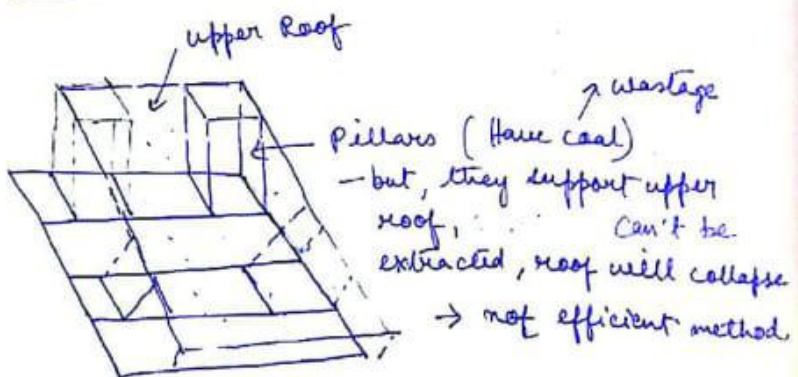 upper Roof
wastage
Pillars (Have coal)
- but, they support upper
roof, can't be
extracted, roof will collapse
→ not efficient method